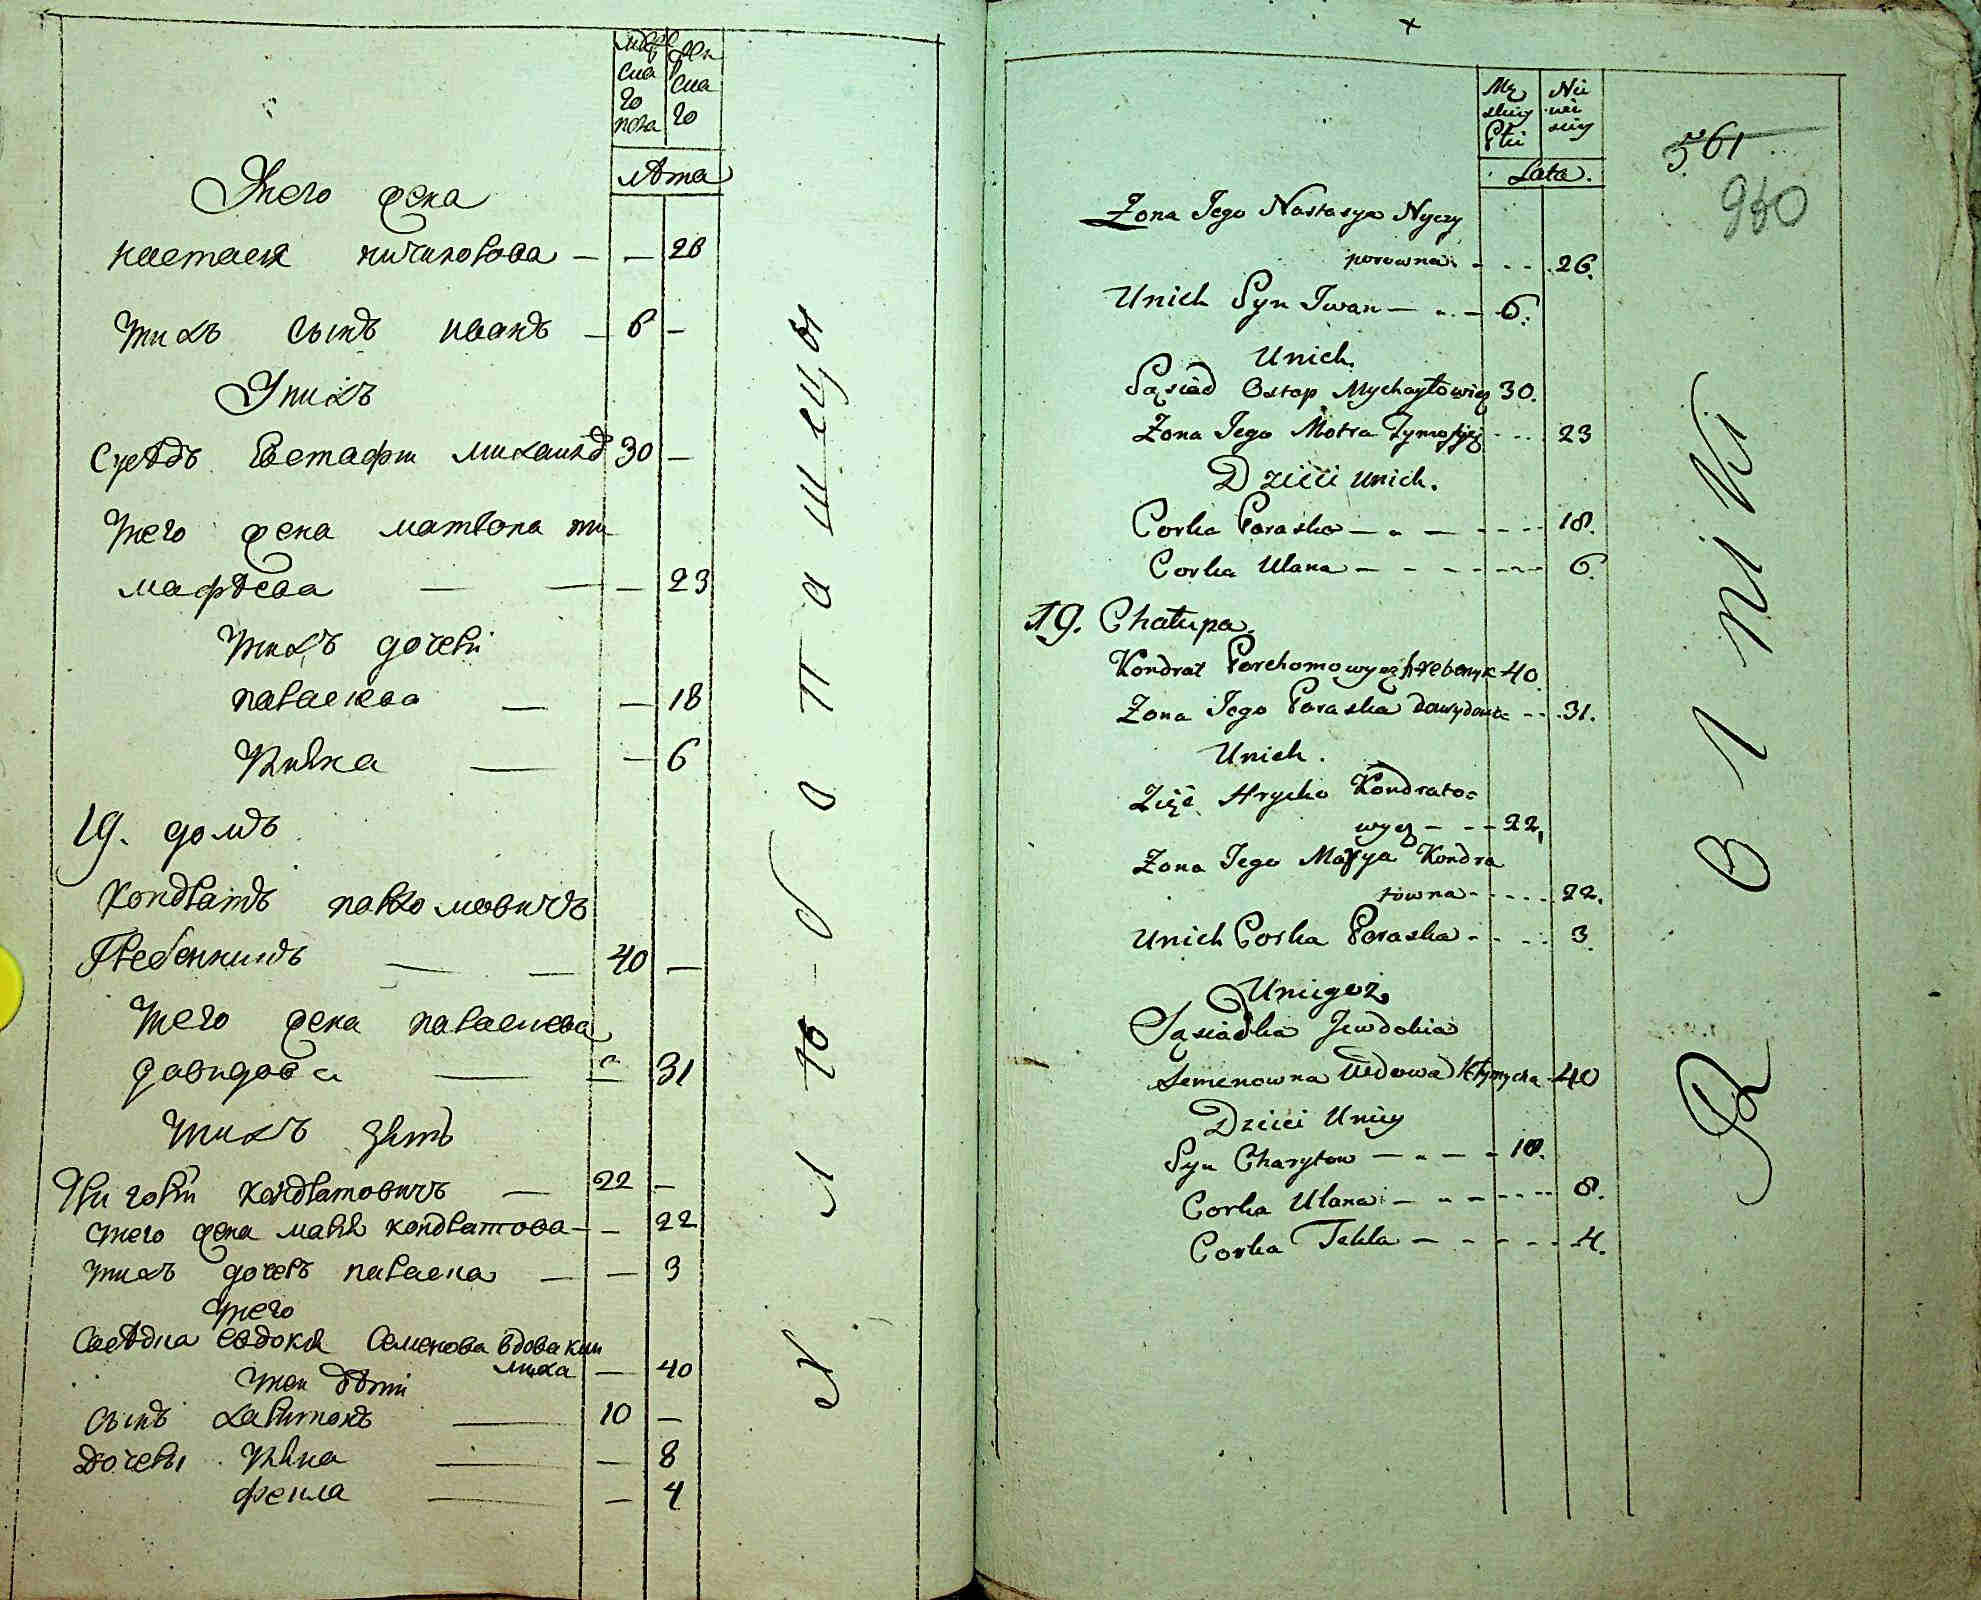 мужескаго пола
женскаго
лѣта
Тего жена
настасия ничипорова — — 26
Тихъ сынъ иванъ — 6 —
Тихъ
Суседъ Евстафии михаилъ 30 —
Тего жена матрона ти-
мофѣева — — — 23
Тихъ дочери
параскева — — 18
Ирина — — 6
19. домъ
Кондратъ пархомовичъ
Гребенникъ — — 40 —
Тего жена параскева
давидова — — 31
Тихъ зять
Григорий кондратовичъ — 22 —
Тего жена мария кондратова — — 22
Тихъ дочеръ параска — — 3
Тего
Соседка евдокия Семенова вдова кли
миха — 40
Теи дети
Сынъ харитонъ — 10 —
Дочери Ирина — — 8
фекла — — 4
Хлѣбопашецы
Mę
skiey
Płci
Nie
wie
sciey
Lata.
561
950
Zona Jego Nastasya Nyczy
porowna - - - - 26.
Unich Syn Iwan — - - 6.
Unich.
Sąsiad Ostap Mychayłowicz 30.
Zona Jego Motra Tymofiej - - - 23
Dzieci unich.
Corka Paraska — - — - - - - 18.
Corka Ulana — - - - - - - 6.
19. Chałupa.
Kondrat Parchomowycz hrebenyk 40.
Zona Jego Paraska Dawydow= - - 31.
Unich.
Zięć Hrycko Kondrato=
wycz — - - 22,
Zona Jego Marya Kondra
towna - - - - - 22.
Unich Corka Paraska - - - - 3.
Uniegoż
Sąsiadka Jewdokia
Semenowna Wdowa Kłymycha 40
Dzieci Uniey
Syn Charyton — - — - 10.
Corka Ulana — - - - - - - 8.
Corka Tekla — - - - - - 4.
Rolniki